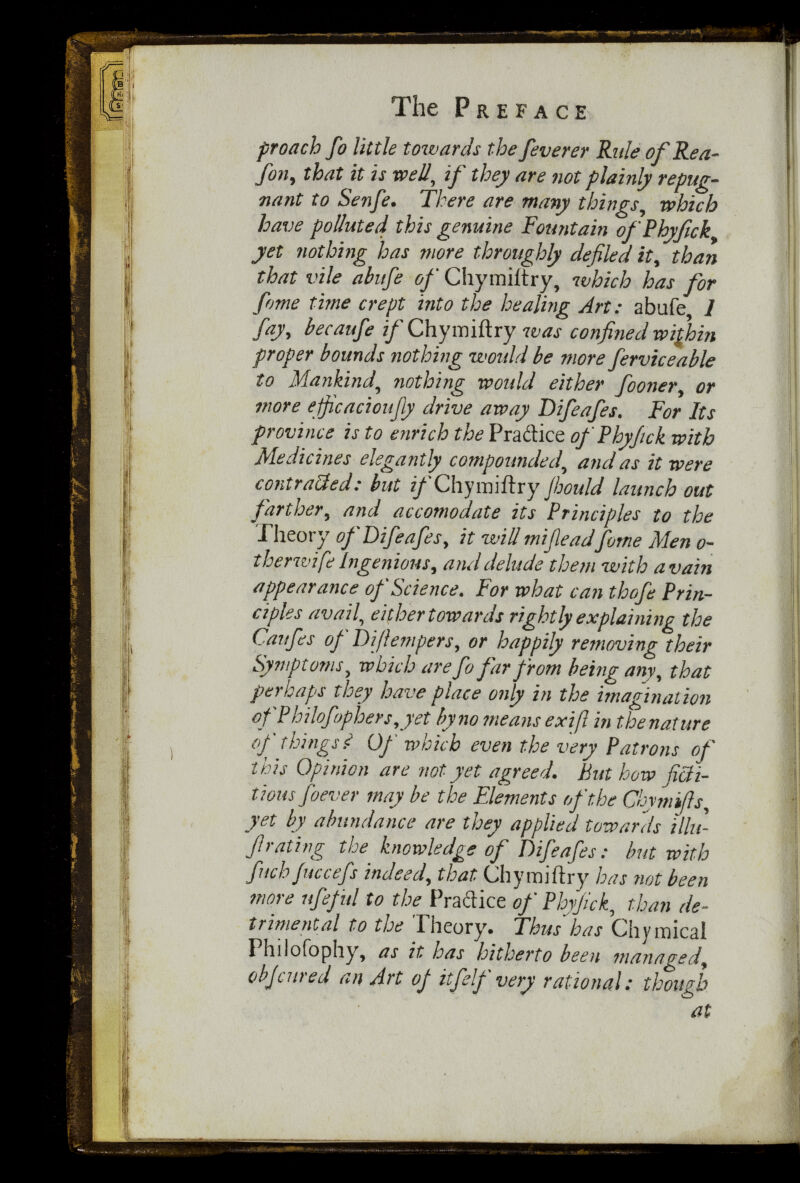 The PREFACE
proach ſo little towards the ſeverer Rule of Rea-
ſon, that it is well, if they are not plainly repug-
nant to Senſe. There are many things, which
have polluted this genuine Fountain of Phyſick,
yet nothing has more throughly defiled it, than
that vile abuſe of Chymiſtry, which has for
ſome time crept into the healing Art: abuſe, I
ſay, becauſe if Chymiſtry was confined within
proper bounds nothing would be more ſerviceable
to Mankind, nothing would either ſooner, or
more efficaciouſly drive away Diſeaſes. For Its
province is to enrich the Practice of Phyſick with
Medicines elegantly compounded, and as it were
contracted: but if Chymiſtry ſhould launch out
farther, and accomodate its Principles to the
Theory of Diſeaſes, it will miſlead ſome Men o-
therwiſe Ingenious, and delude them with a vain
appearance of Science. For what can thoſe Prin-
ciples avail, either towards rightly explaining the
Cauſes of Diſtempers, or happily removing their
Symptoms, which are ſo far from being any, that
perhaps they have place only in the imagination
of Philoſophers, yet by no means exiſt in the nature
of things? Of which even the very Patrons of
this Opinion are not yet agreed. But how ficti-
tious ſoever may be the Elements of the Chymiſts,
yet by abundance are they applied towards illu-
ſtrating the knowledge of Diſeaſes: but with
ſuch ſucceſs indeed, that Chymiſtry has not been
more uſeful to the Practice of Phyſick, than de-
trimental to the Theory. Thus has Chymical
Philoſophy, as it has hitherto been managed,
obſcured an Art of itſelf very rational: though
at